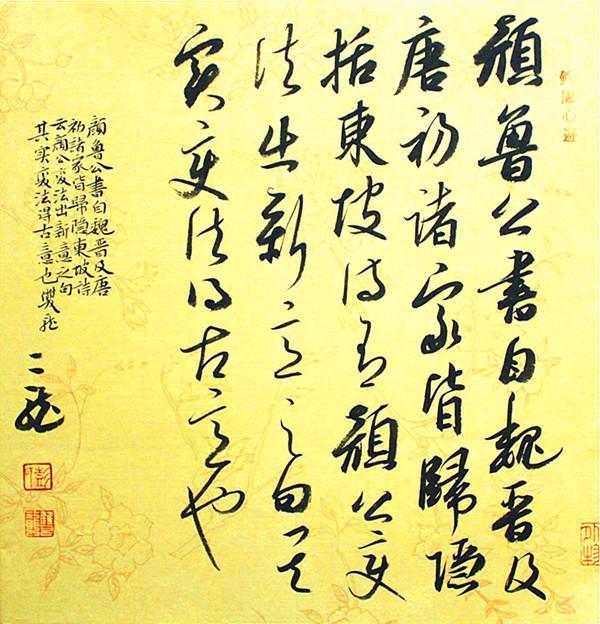 顔魯公書自魏晉及
唐初諸家皆歸隱
括東坡詩有顔公變
法出新意之句其
實變法得古意也
顔魯公書自魏晉及唐
初諸家皆歸隱東坡詩
云顔公變法出新意之句
其實變法得古意也